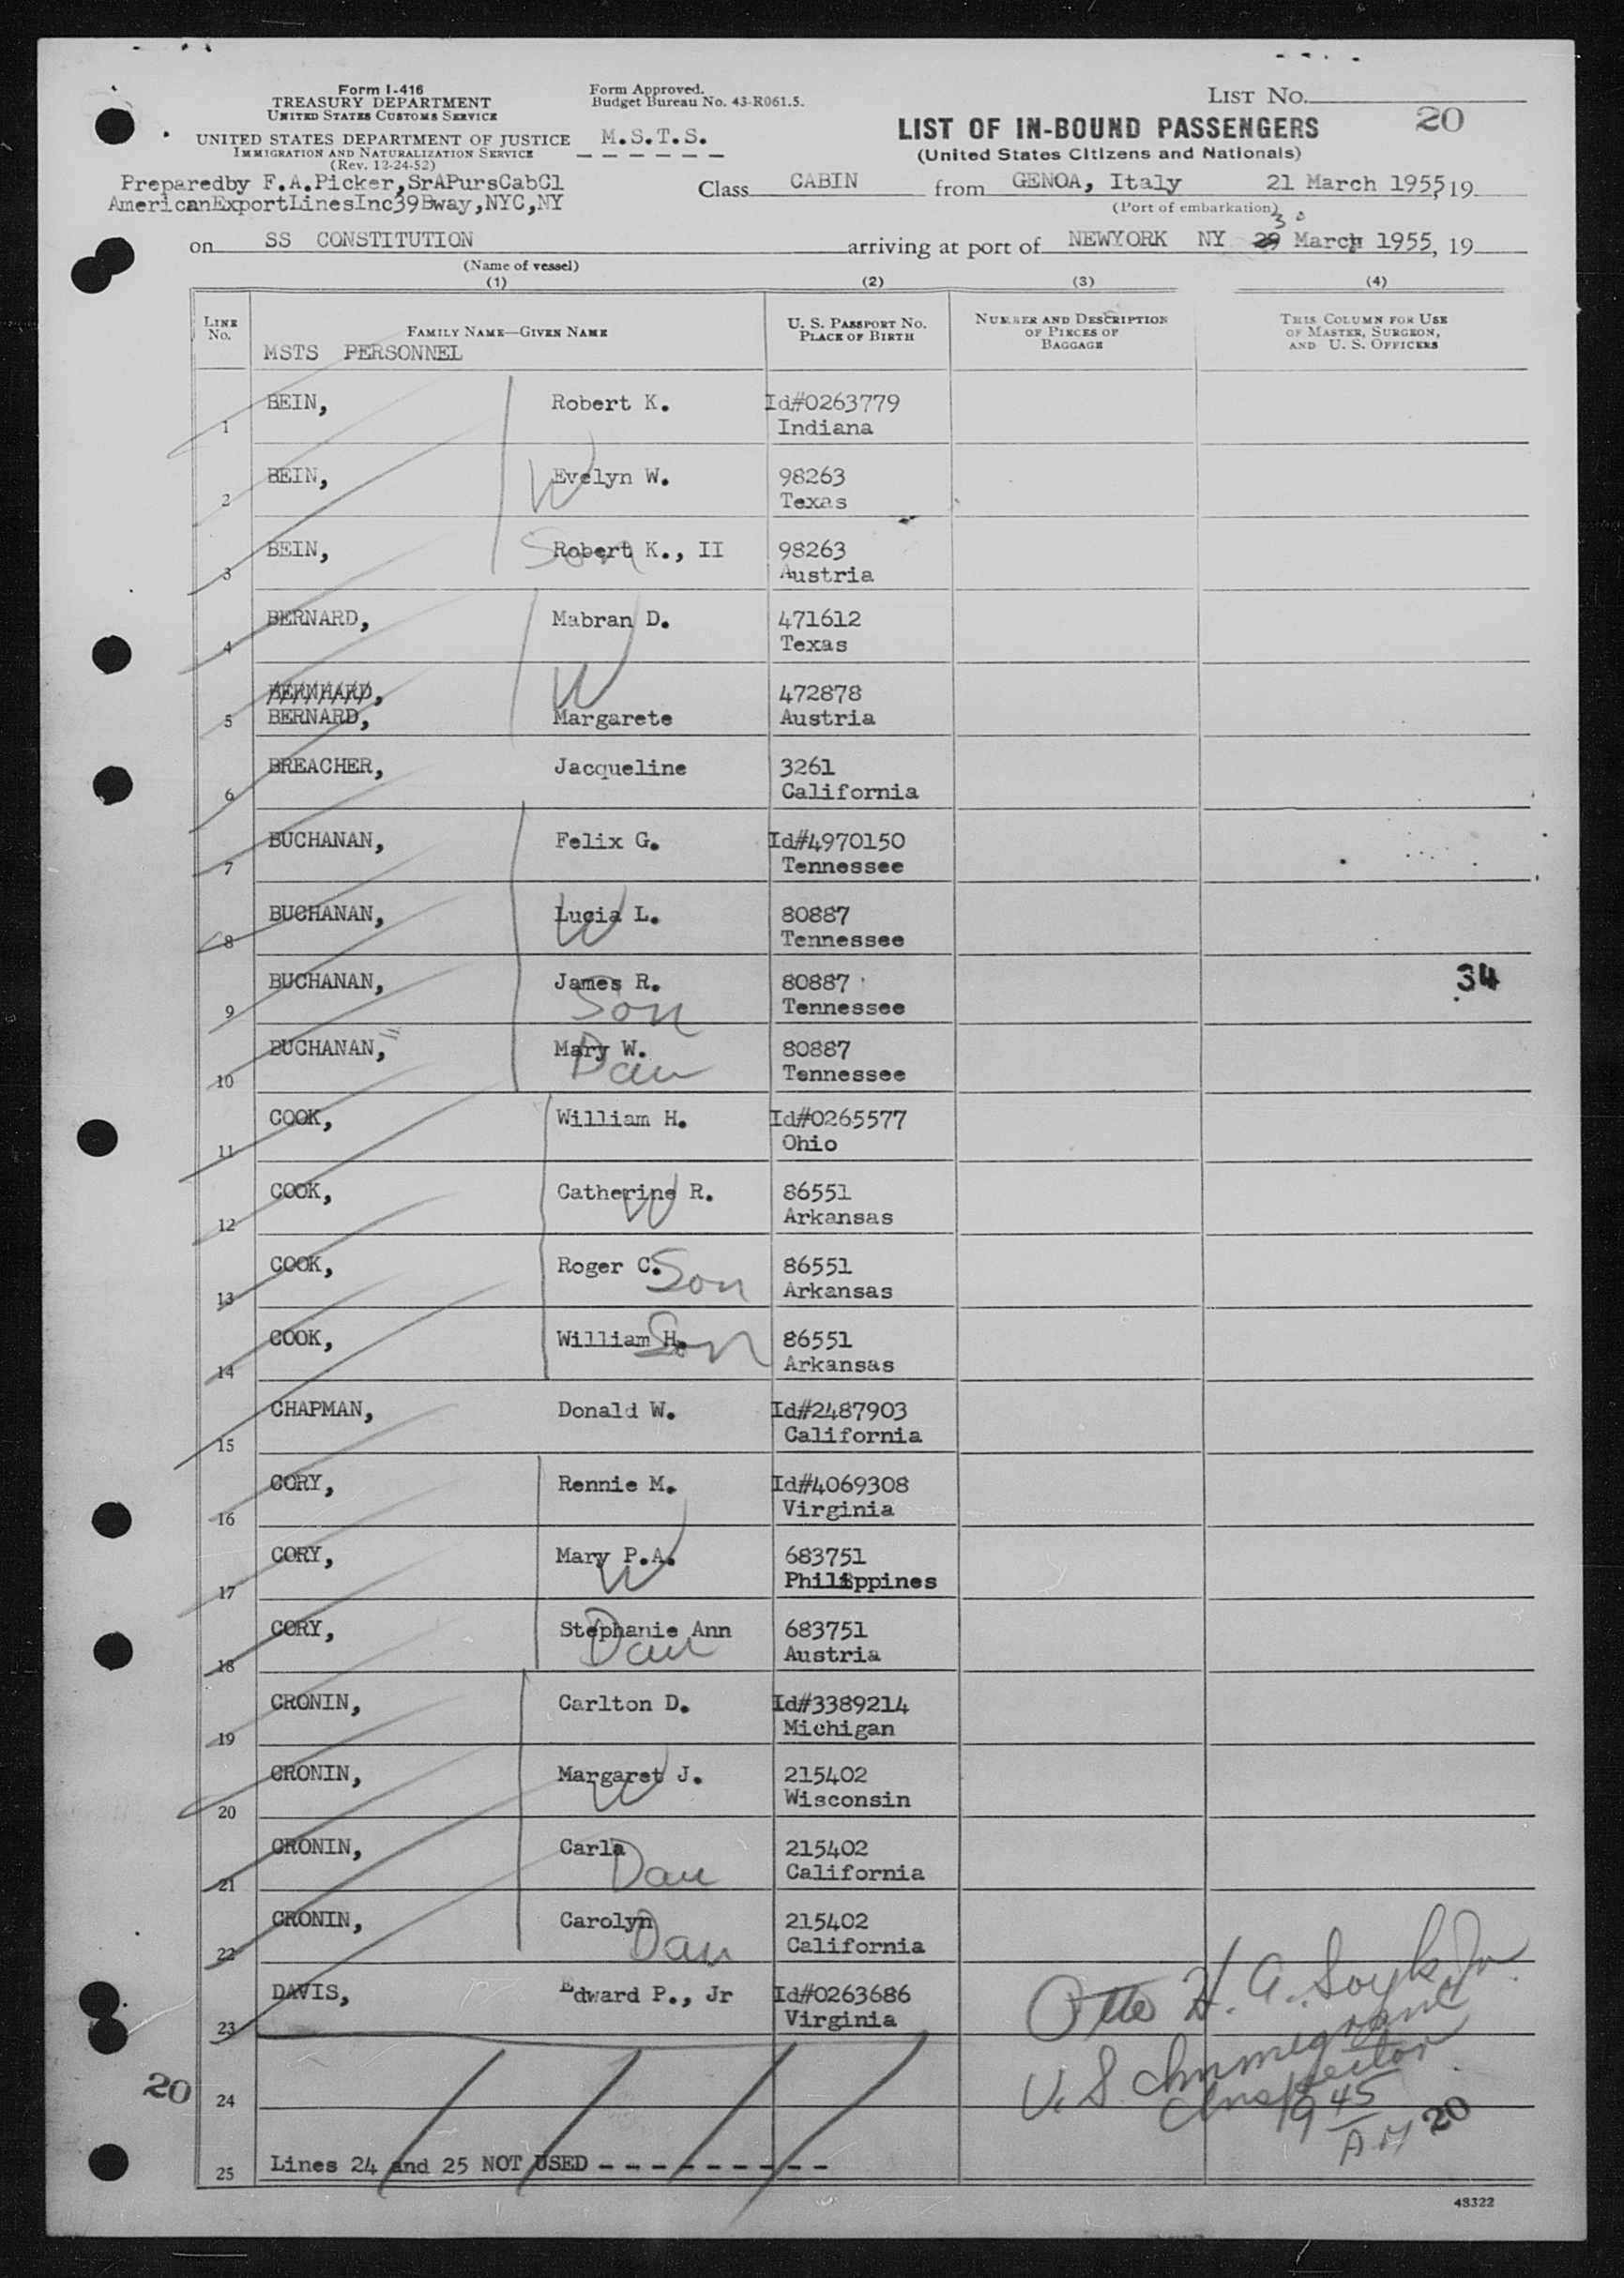 Form I-416
TREASURY DEPARTMENT
UNITED STATES CUSTOMS SERVICE
UNITED STATES DEPARTMENT OF JUSTICE
IMMIGRATION AND NATURALIZATION SERVICE
(Rev. 12-24-52)
Form Approved.
Budget Bureau No. 43-R061.5.
M.S.T.S.
LIST NO.
20
LIST OF IN-BOUND PASSENGERS
(United States Citizens and Nationals)
Preparedby F.A.Picker,SrAPursCabCl
AmericanExportLinesInc39Bway,NYC,NY
Class CABIN from GENOA, Italy 21 March 1955, 19
(Port of embarkation)
30
on SS CONSTITUTION arriving at port of NEWYORK NY 29 March 1955, 19
(Name of vessel)
(1) (2) (3) (4)
LINE NO.
FAMILY NAME—GIVEN NAME
U. S. PASSPORT NO.
PLACE OF BIRTH
NUMBER AND DESCRIPTION
OF PIECES OF
BAGGAGE
THIS COLUMN FOR USE
OF MASTER, SURGEON,
AND U. S. OFFICERS
MSTS PERSONNEL
1 BEIN, Robert K. Id#0263779
Indiana
2 BEIN, Evelyn W. W 98263
Texas
3 BEIN, Robert K., II Son 98263
Austria
4 BERNARD, Mabran D. 471612
Texas
BERNHARD, 472878
5 BERNARD, Margarete W Austria
6 BREACHER, Jacqueline 3261
California
7 BUCHANAN, Felix G. Id#4970150
Tennessee
8 BUCHANAN, Lucia L. W 80887
Tennessee
9 BUCHANAN, James R. Son 80887
Tennessee
34
10 BUCHANAN, Mary W. Dau 80887
Tennessee
11 COOK, William H. Id#0265577
Ohio
12 COOK, Catherine R. W 86551
Arkansas
13 COOK, Roger C. Son 86551
Arkansas
14 COOK, William H. Son 86551
Arkansas
15 CHAPMAN, Donald W. Id#2487903
California
16 CORY, Rennie M. Id#4069308
Virginia
17 CORY, Mary P.A. W 683751
Philippines
18 CORY, Stephanie Ann Dau 683751
Austria
19 CRONIN, Carlton D. Id#3389214
Michigan
20 CRONIN, Margaret J. W 215402
Wisconsin
21 CRONIN, Carla Dau 215402
California
22 CRONIN, Carolyn Dau 215402
California
23 DAVIS, Edward P., Jr Id#0263686
Virginia
Otto H. A. Soyk Jr
U. S. Immigrant
Inspector
9 45
A M
20
20
24
25 Lines 24 and 25 NOT USED - - - - - - - - -
48322